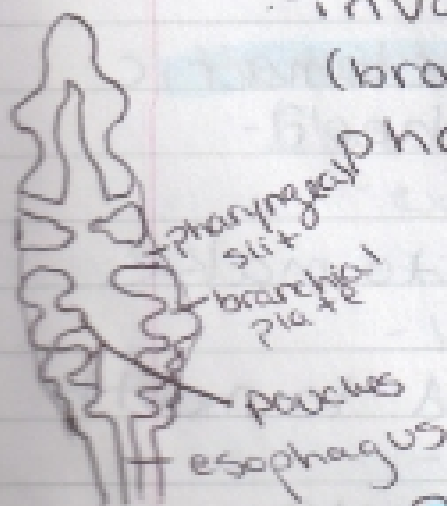 (bra
pha
pharyngeal
slit
branchial
plate
pouches
esophagus